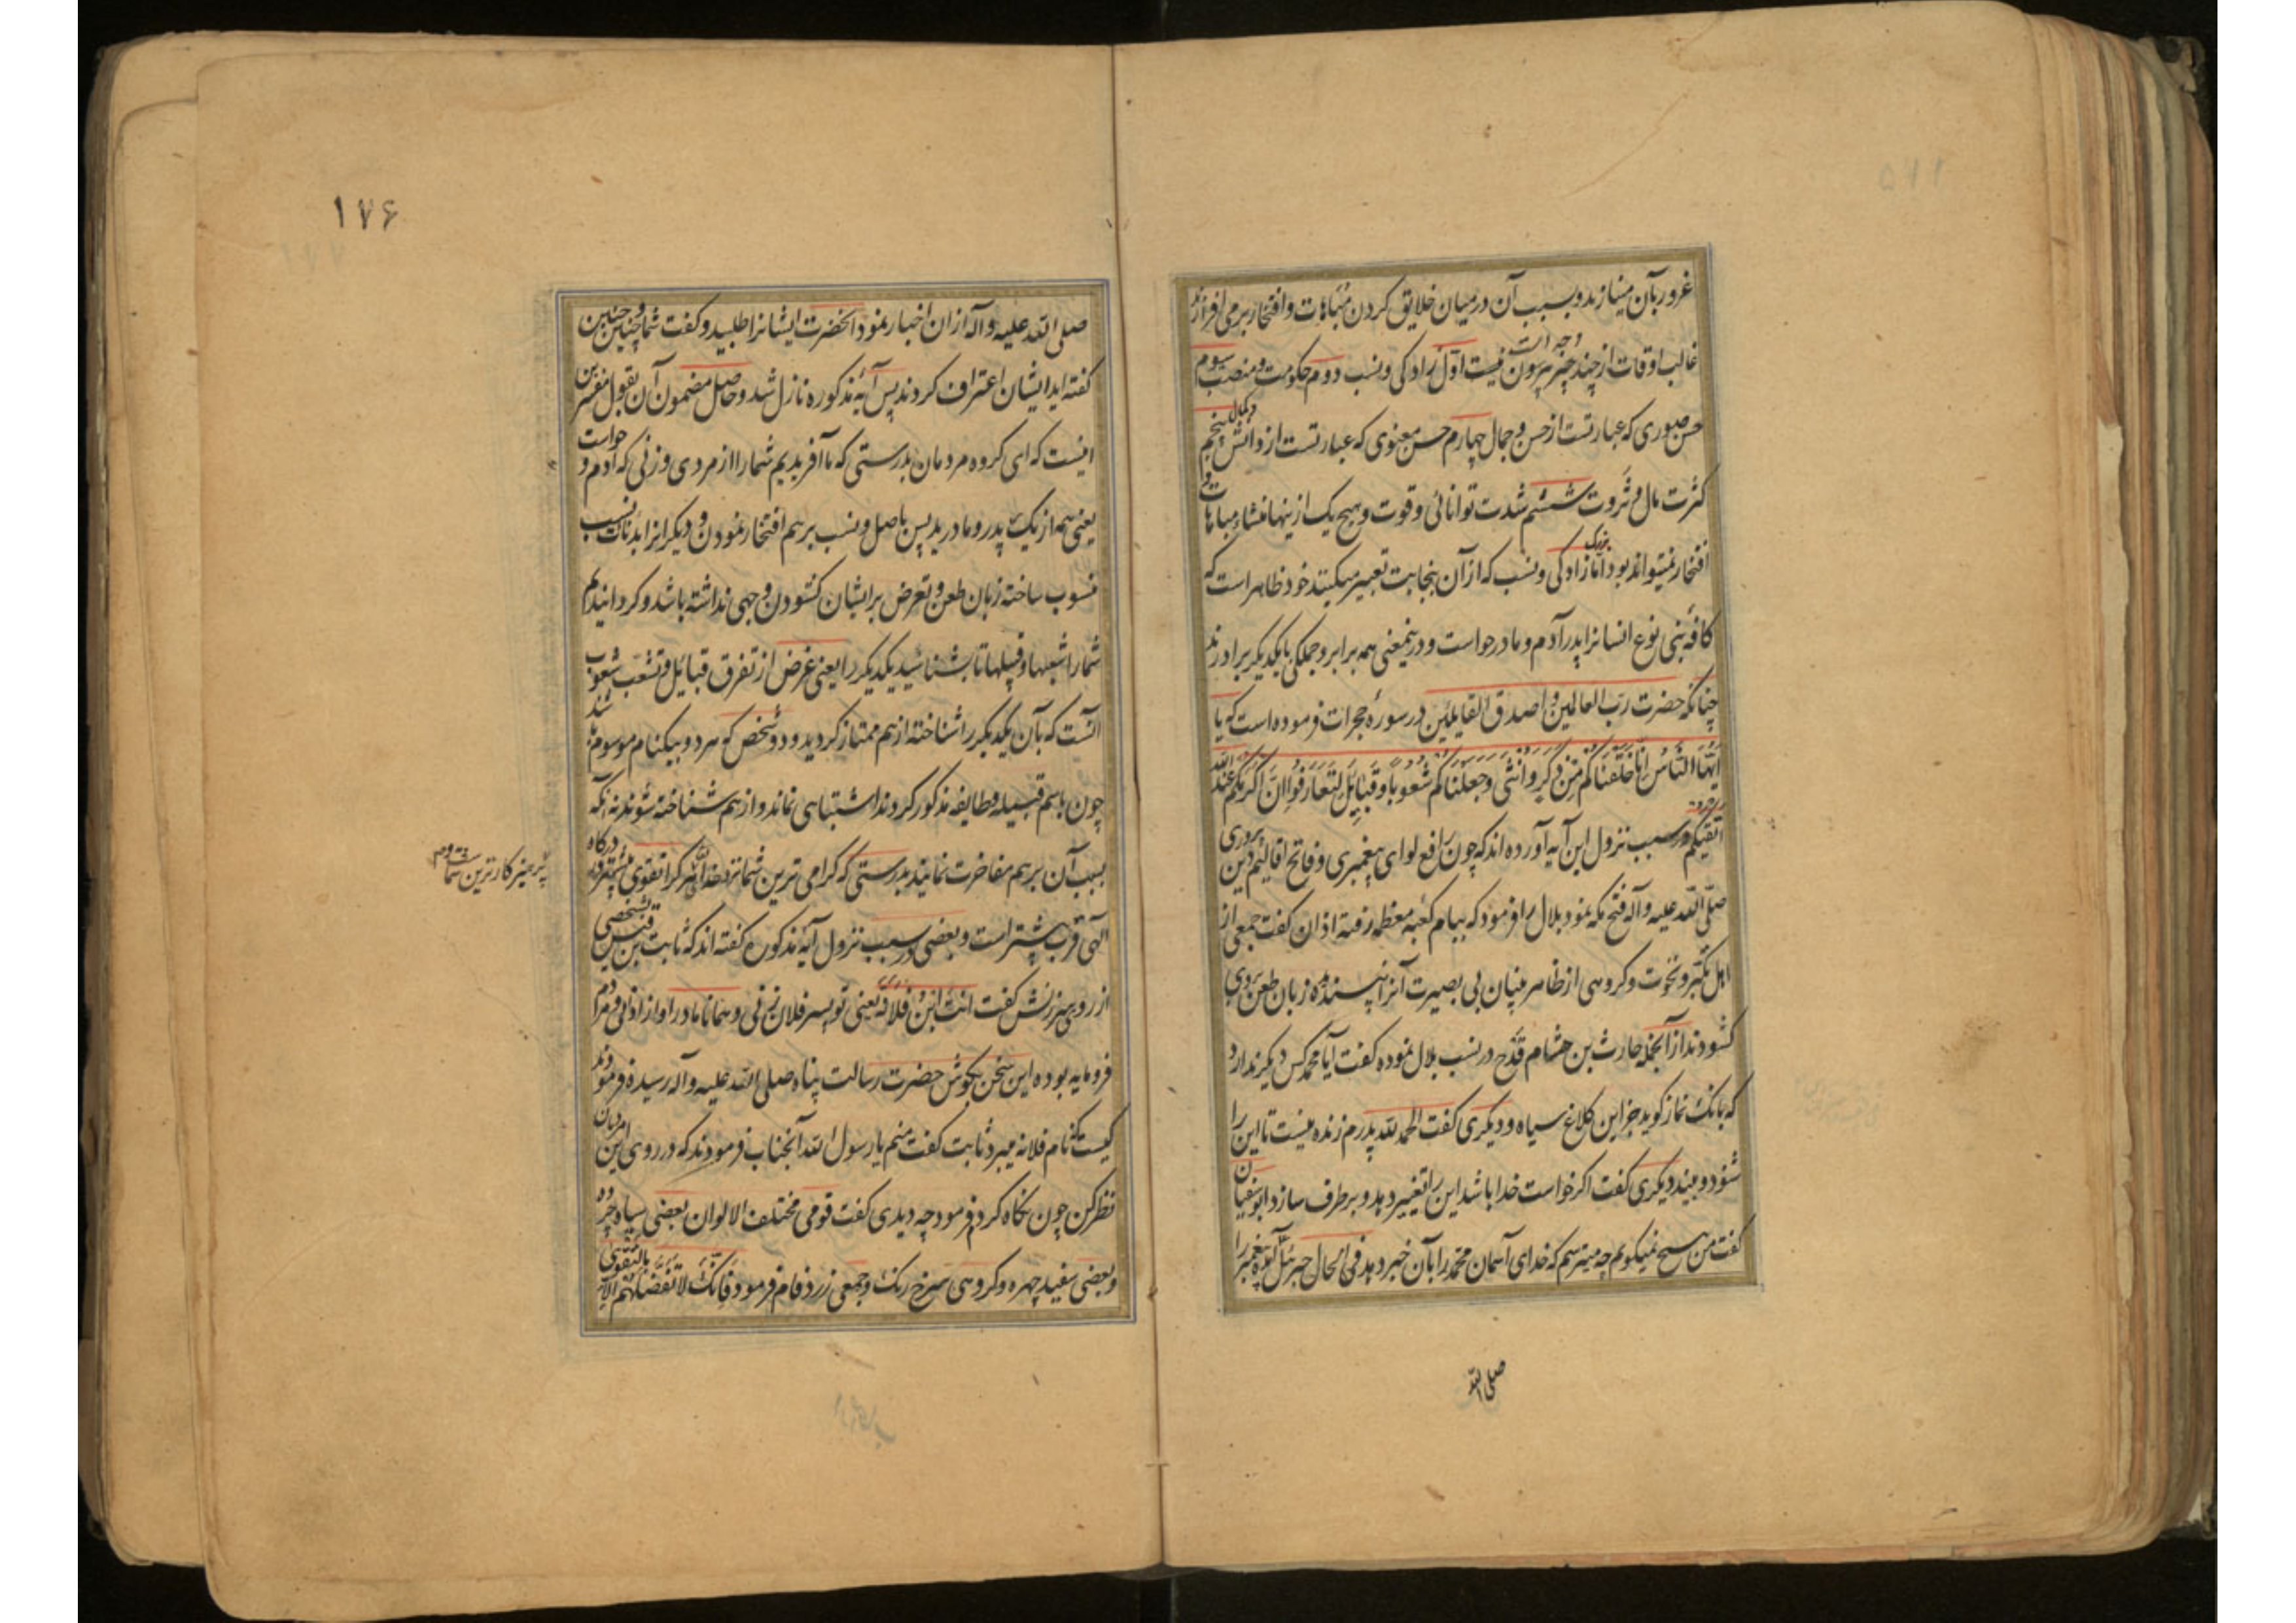 غرور بآن مینازند و بسبب آن در میان خلایق کردن مباهات و افتخار برمی افرازند
غالب اوقات از چند چیز بیرون نیست اوّل زادکی و نسب دوم حکومت و منصب سیوم
حسن صوری که عبارتست از حسن و جمال چهارم حسن معنوی که عبارتست از دانش و کمال پنجم
کثرت مال و ثروت ششم شدت توانائی و قوت و هیچ یک ازینها منشاء مباهات و
افتخار نمیتواند بود امّا بزرک زادکی و نسب که از آن بنجابت تعبیر میکنند خود ظاهر است که
کافهٔ بنی نوع انسانرا پدر آدم و مادر حواست و درینمعنی همه برابر و جملکی با یکدیکر برادرند
چنانکه حضرت ربّ العالمین و اصدق القایلین در سورهٔ حجرات فرموده است که یا
اَیُّهَا النَّاسُ اِنَّا خَلَقْنَاکُمْ مِنْ ذَکَرٍ وَاُنْثَی وَجَعَلْنَاکُمْ شُعُوبًا وَقَبَایِلَ لِتَعَارَفُوا اِنَّ اَکْرَمَکُمْ عِنْدَ اللّه
اَتْقیکُمْ در سبب نزول این آیه آورده اند که چون رافع لوای پیغمبری و فاتح اقالیم دین پروری
صلّی اللّه علیه و آله فتح مکه نمود بلال را فرمود که ببام کعبه معظمه رفته اذان کفت جمعی از
اهل تکبّر و نخوت و کروهی از ظاهر بینان بی بصیرت آنرا نپسندیده زبان طعن بروی
کشودند از آنجمله حارث بن هشام قدح در نسب بلال نموده کفت آیا محمد کس دیکر ندارد
که بانک نماز کوید جز این کلاغ سیاه و دیکری کفت الحمد للّه پدرم زنده نیست تا این را
شنود و بیند دیکری کفت اکر خواست خدا باشد این را تغییر دهد و برطرف سازد ابوسفیان
کفت من هیچ نمیکویم چه میترسم که خدای آسمان محمد را بآن خبر دهد فی الحال جبرئیل آمده پیغمبر را
صلی اللّه
۱۷۶
صلی اللّه علیه و آله از ان اخبار نمود انحضرت ایشانرا طلبید و کفت شما چنین و چنین
کفته اید ایشان اعتراف کردند پس آیهٔ مذکوره نازل شد و حاصل مضمون آن بقول مفسرین
اینست که ای کروه مردمان بدرستی که ما آفریدیم شما را از مردی و زنی که آدم و حواست
یعنی همه از یک پدر و مادرید پس باصل و نسب بر هم افتخار نمودن و دیکرانرا بدنائت نسب
منسوب ساخته زبان طعن و تعرض بر ایشان کشودن وجهی نداشته باشد و کردانیدیم
شما را شعبها و قبیلها تا بشناسید یکدیکر را یعنی غرض از تفرق قبائل و تشعّب شعوب
آنست که بآن یکدیکر را شناخته از هم ممتاز کردید و دو شخص که هر دو بیکنام موسوم باشند
چون باسم قبیله و طایفه مذکور کردند اشتباهی نماند و از هم شناخته شوند نه آنکه
بسبب آن بر هم مفاخرت نمایند بدرستی که کرامی ترین شما نزد خدا هر کرا تقوی بیشتر در درکاه
پرهیزکارترین شماست
الهی قرب بیشتر است و بعضی در سبب نزول آیه مذکوره کفته اند که ثابت بن قیس بشخصی
از روی سرزنش کفت انت ابن فلانة یعنی تو پسر فلان زنی و همانا مادر او از ادانی مردم
فرومایه بوده این سخن بکوش حضرت رسالت پناه صلی اللّه علیه و آله رسیده فرمودند
کیست که نام فلانه میبرد ثابت کفت منم یا رسول اللّه آنجناب فرمودند که در روی این مردمان
نظر کن چون نکاه کردم فرمود چه دیدی کفت قومی مختلف الالوان بعضی سیاه چرده
و بعضی سفید چهره و کروهی سرخ رنک و جمعی زرد فام فرمود فَاِنَّکَ لاتَفْضُلُهُمْ اِلّا بِالتَّقْوَی